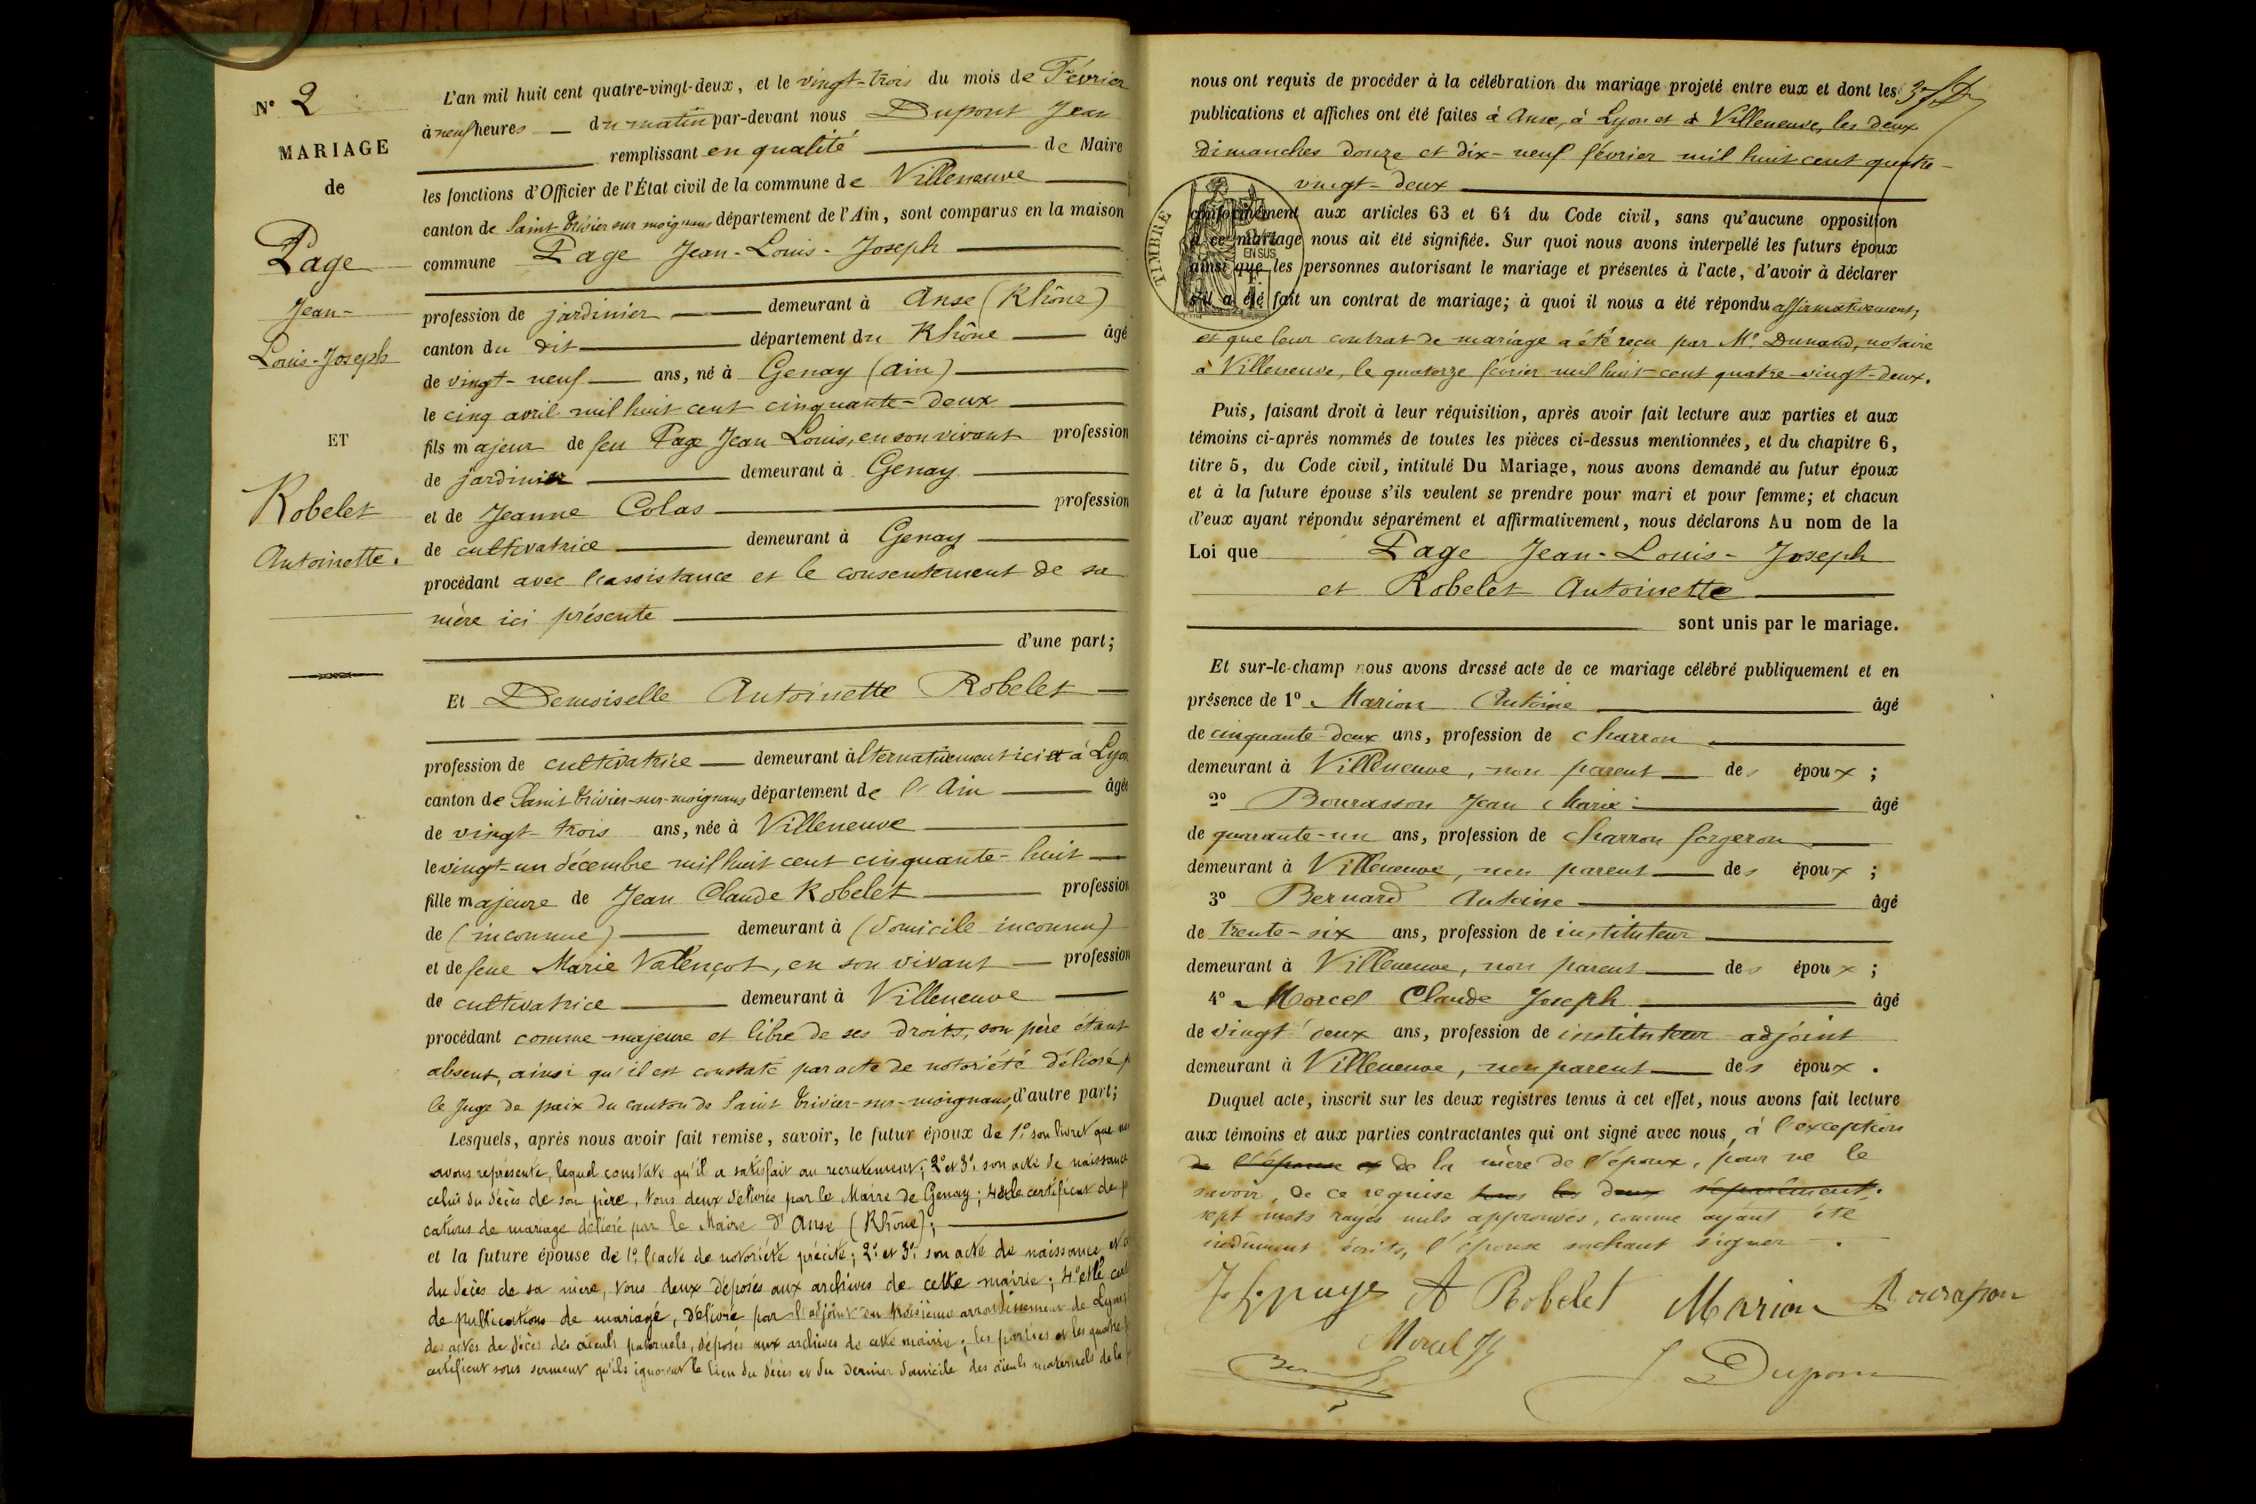 N° 2
MARIAGE
de
Page
Jean-
Louis-Joseph
ET
Robelet
Antoinette.
L'an mil huit cent quatre-vingt-deux, et le vingt-trois du mois de Février
à neuf heures du matin par-devant nous Dupont Jean
remplissant en qualité de Maire
les fonctions d'Officier de l'État civil de la commune de Villeneuve
canton de Saint Trivier sur moignans département de l'Ain, sont comparus en la maison
commune Page Jean-Louis-Joseph
profession de jardinier demeurant à Anse (Rhône)
canton du dit département du Rhône âgé
de vingt-neuf ans, né à Genay (Ain)
le cinq avril mil huit cent cinquante-deux
fils majeur de feu Page Jean Louis, en son vivant profession
de jardinier demeurant à Genay
et de Jeanne Colas profession
de cultivatrice demeurant à Genay
procédant avec l'assistance et le consentement de sa
mère ici présente
d'une part;
Et Demoiselle Antoinette Robelet
profession de cultivatrice demeurant alternativement ici et à Lyon
canton de Saint Trivier-sur-moignans département de l'Ain âgée
de vingt-trois ans, née à Villeneuve
le vingt-un décembre mil huit cent cinquante-huit
fille majeure de Jean Claude Robelet profession
de (inconnue) demeurant à (domicile inconnu)
et de feue Marie Valençot, en son vivant profession
de cultivatrice demeurant à Villeneuve
procédant comme majeure et libre de ses droits, son père étant
absent, ainsi qu'il est constaté par acte de notoriété délivré
le Juge de paix du canton de Saint Trivier-sur-moignans, d'autre part;
Lesquels, après nous avoir fait remise, savoir, le futur époux de 1° son livret que
avons représenté, lequel constate qu'il a satisfait au recrutement; 2° et 3° son acte de naissance
celui du décès de son père, tous deux délivrés par le Maire de Genay; 4° le certificat de
cations de mariage délivré par le Maire d'Anse (Rhône);
et la future épouse de 1° l'acte de notoriété précité; 2° et 3° son acte de naissance et
du décès de sa mère, tous deux déposés aux archives de cette mairie; 4° et le
de publications de mariage, délivré par l'adjoint du troisième arrondissement de Lyon
des actes de décès des aïeuls paternels, déposés aux archives de cette mairie; les parties et les quatre
certifient sous serment qu'ils ignorent le lieu du décès et du dernier domicile des aïeuls maternels de la
nous ont requis de procéder à la célébration du mariage projeté entre eux et dont les
publications et affiches ont été faites à Anse, à Lyon et à Villeneuve, les deux
dimanches douze et dix-neuf février mil huit cent quatre-
vingt-deux
conformément aux articles 63 et 64 du Code civil, sans qu'aucune opposition
à ce mariage nous ait été signifiée. Sur quoi nous avons interpellé les futurs époux
ainsi que les personnes autorisant le mariage et présentes à l'acte, d'avoir à déclarer
s'il a été fait un contrat de mariage; à quoi il nous a été répondu affirmativement,
et que leur contrat de mariage a été reçu par Me Dunand, notaire
à Villeneuve, le quatorze février mil huit cent quatre-vingt-deux.
TIMBRE
EN SUS
Puis, faisant droit à leur réquisition, après avoir fait lecture aux parties et aux
témoins ci-après nommés de toutes les pièces ci-dessus mentionnées, et du chapitre 6,
titre 5, du Code civil, intitulé Du Mariage, nous avons demandé au futur époux
et à la future épouse s'ils veulent se prendre pour mari et pour femme; et chacun
d'eux ayant répondu séparément et affirmativement, nous déclarons Au nom de la
Loi que Page Jean-Louis-Joseph
et Robelet Antoinette
sont unis par le mariage.
Et sur-le-champ nous avons dressé acte de ce mariage célébré publiquement et en
présence de 1° Marion Antoine âgé
de cinquante-deux ans, profession de charron
demeurant à Villeneuve, non parent des époux;
2° Bourasson Jean Marie âgé
de quarante-un ans, profession de charron forgeron
demeurant à Villeneuve, non parent des époux;
3° Bernard Antoine âgé
de trente-six ans, profession de instituteur
demeurant à Villeneuve, non parent des époux;
4° Morcel Claude Joseph âgé
de vingt deux ans, profession de instituteur adjoint
demeurant à Villeneuve, non parent des époux.
Duquel acte, inscrit sur les deux registres tenus à cet effet, nous avons fait lecture
aux témoins et aux parties contractantes qui ont signé avec nous, à l'exception
de l'épouse et de la mère de l'époux, pour ne le
savoir, de ce requise tous les deux séparément.
sept mots rayés nuls approuvés, comme ayant été
indûment écrits, l'épouse sachant signer.
A Robelet Marion Bourasson
Morcel
J Dupont